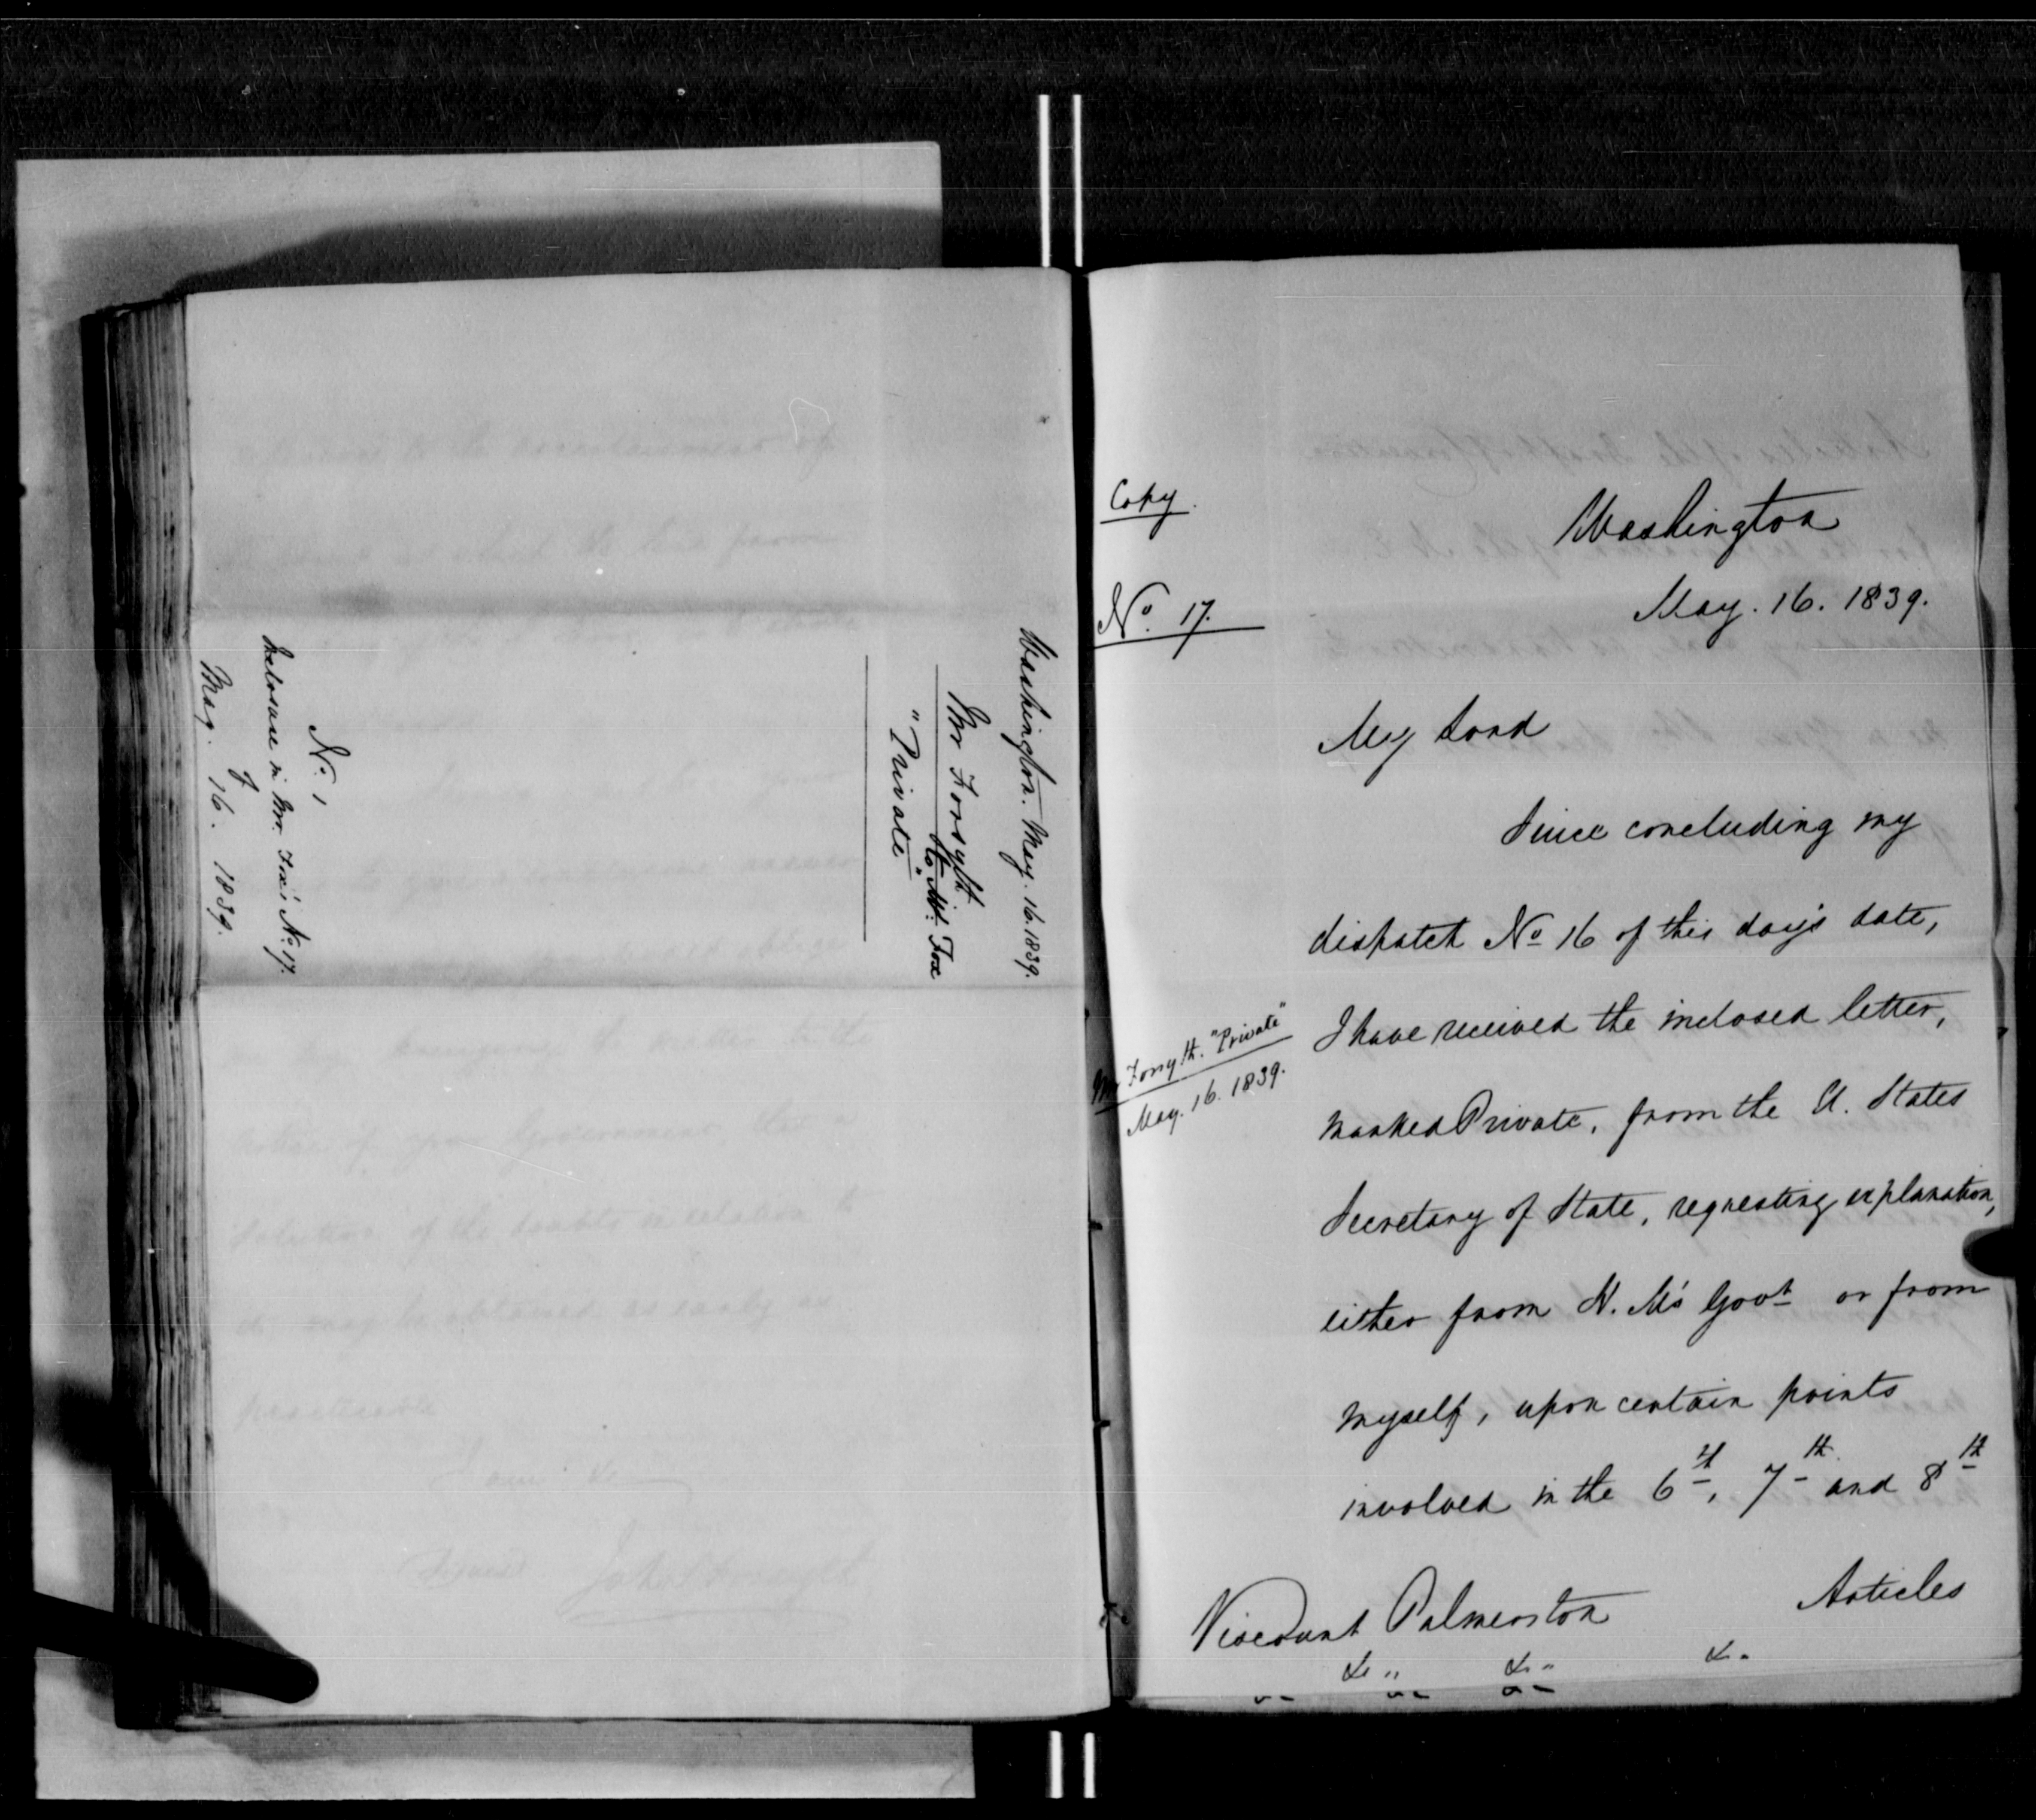 Washington. May. 16. 1839.
Mr Forsyth
to Mr. Fox
"Private"
No. 1
Inclosure in Mr. Fox's No. 17.
of
May. 16. 1839.
Copy.
Washington
No. 17.
May. 16. 1839.
My Lord
Since concluding my
dispatch No 16 of this day's date,
I have received the inclosed letter,
Mr Forsyth. "Private"
May. 16. 1839.
marked Private, from the U. States
Secretary of State, requesting explanation,
either from H. M's Govt or from
myself, upon certain points
involved in the 6th, 7th and 8th
Articles
Viscount Palmerston
&c " &c " &c "